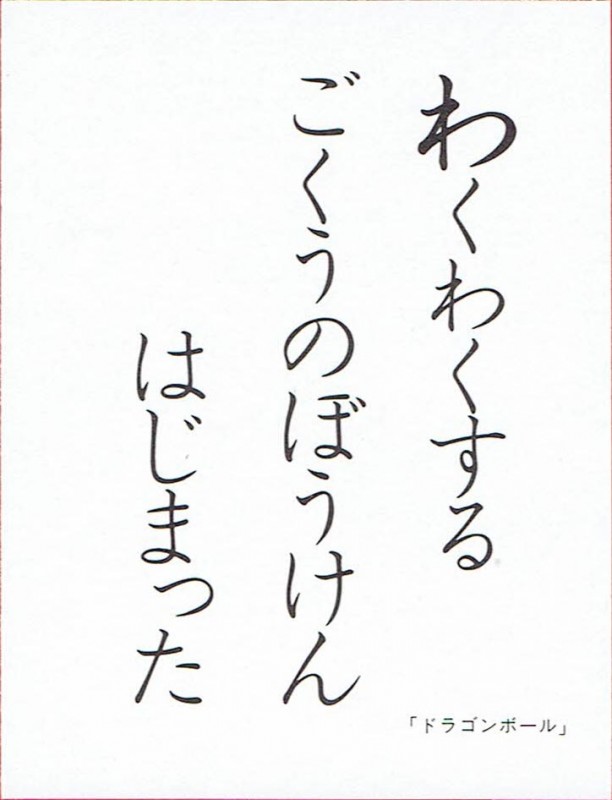 わくわくする
ごくうのぼうけん
はじまった
「ドラゴンボール」